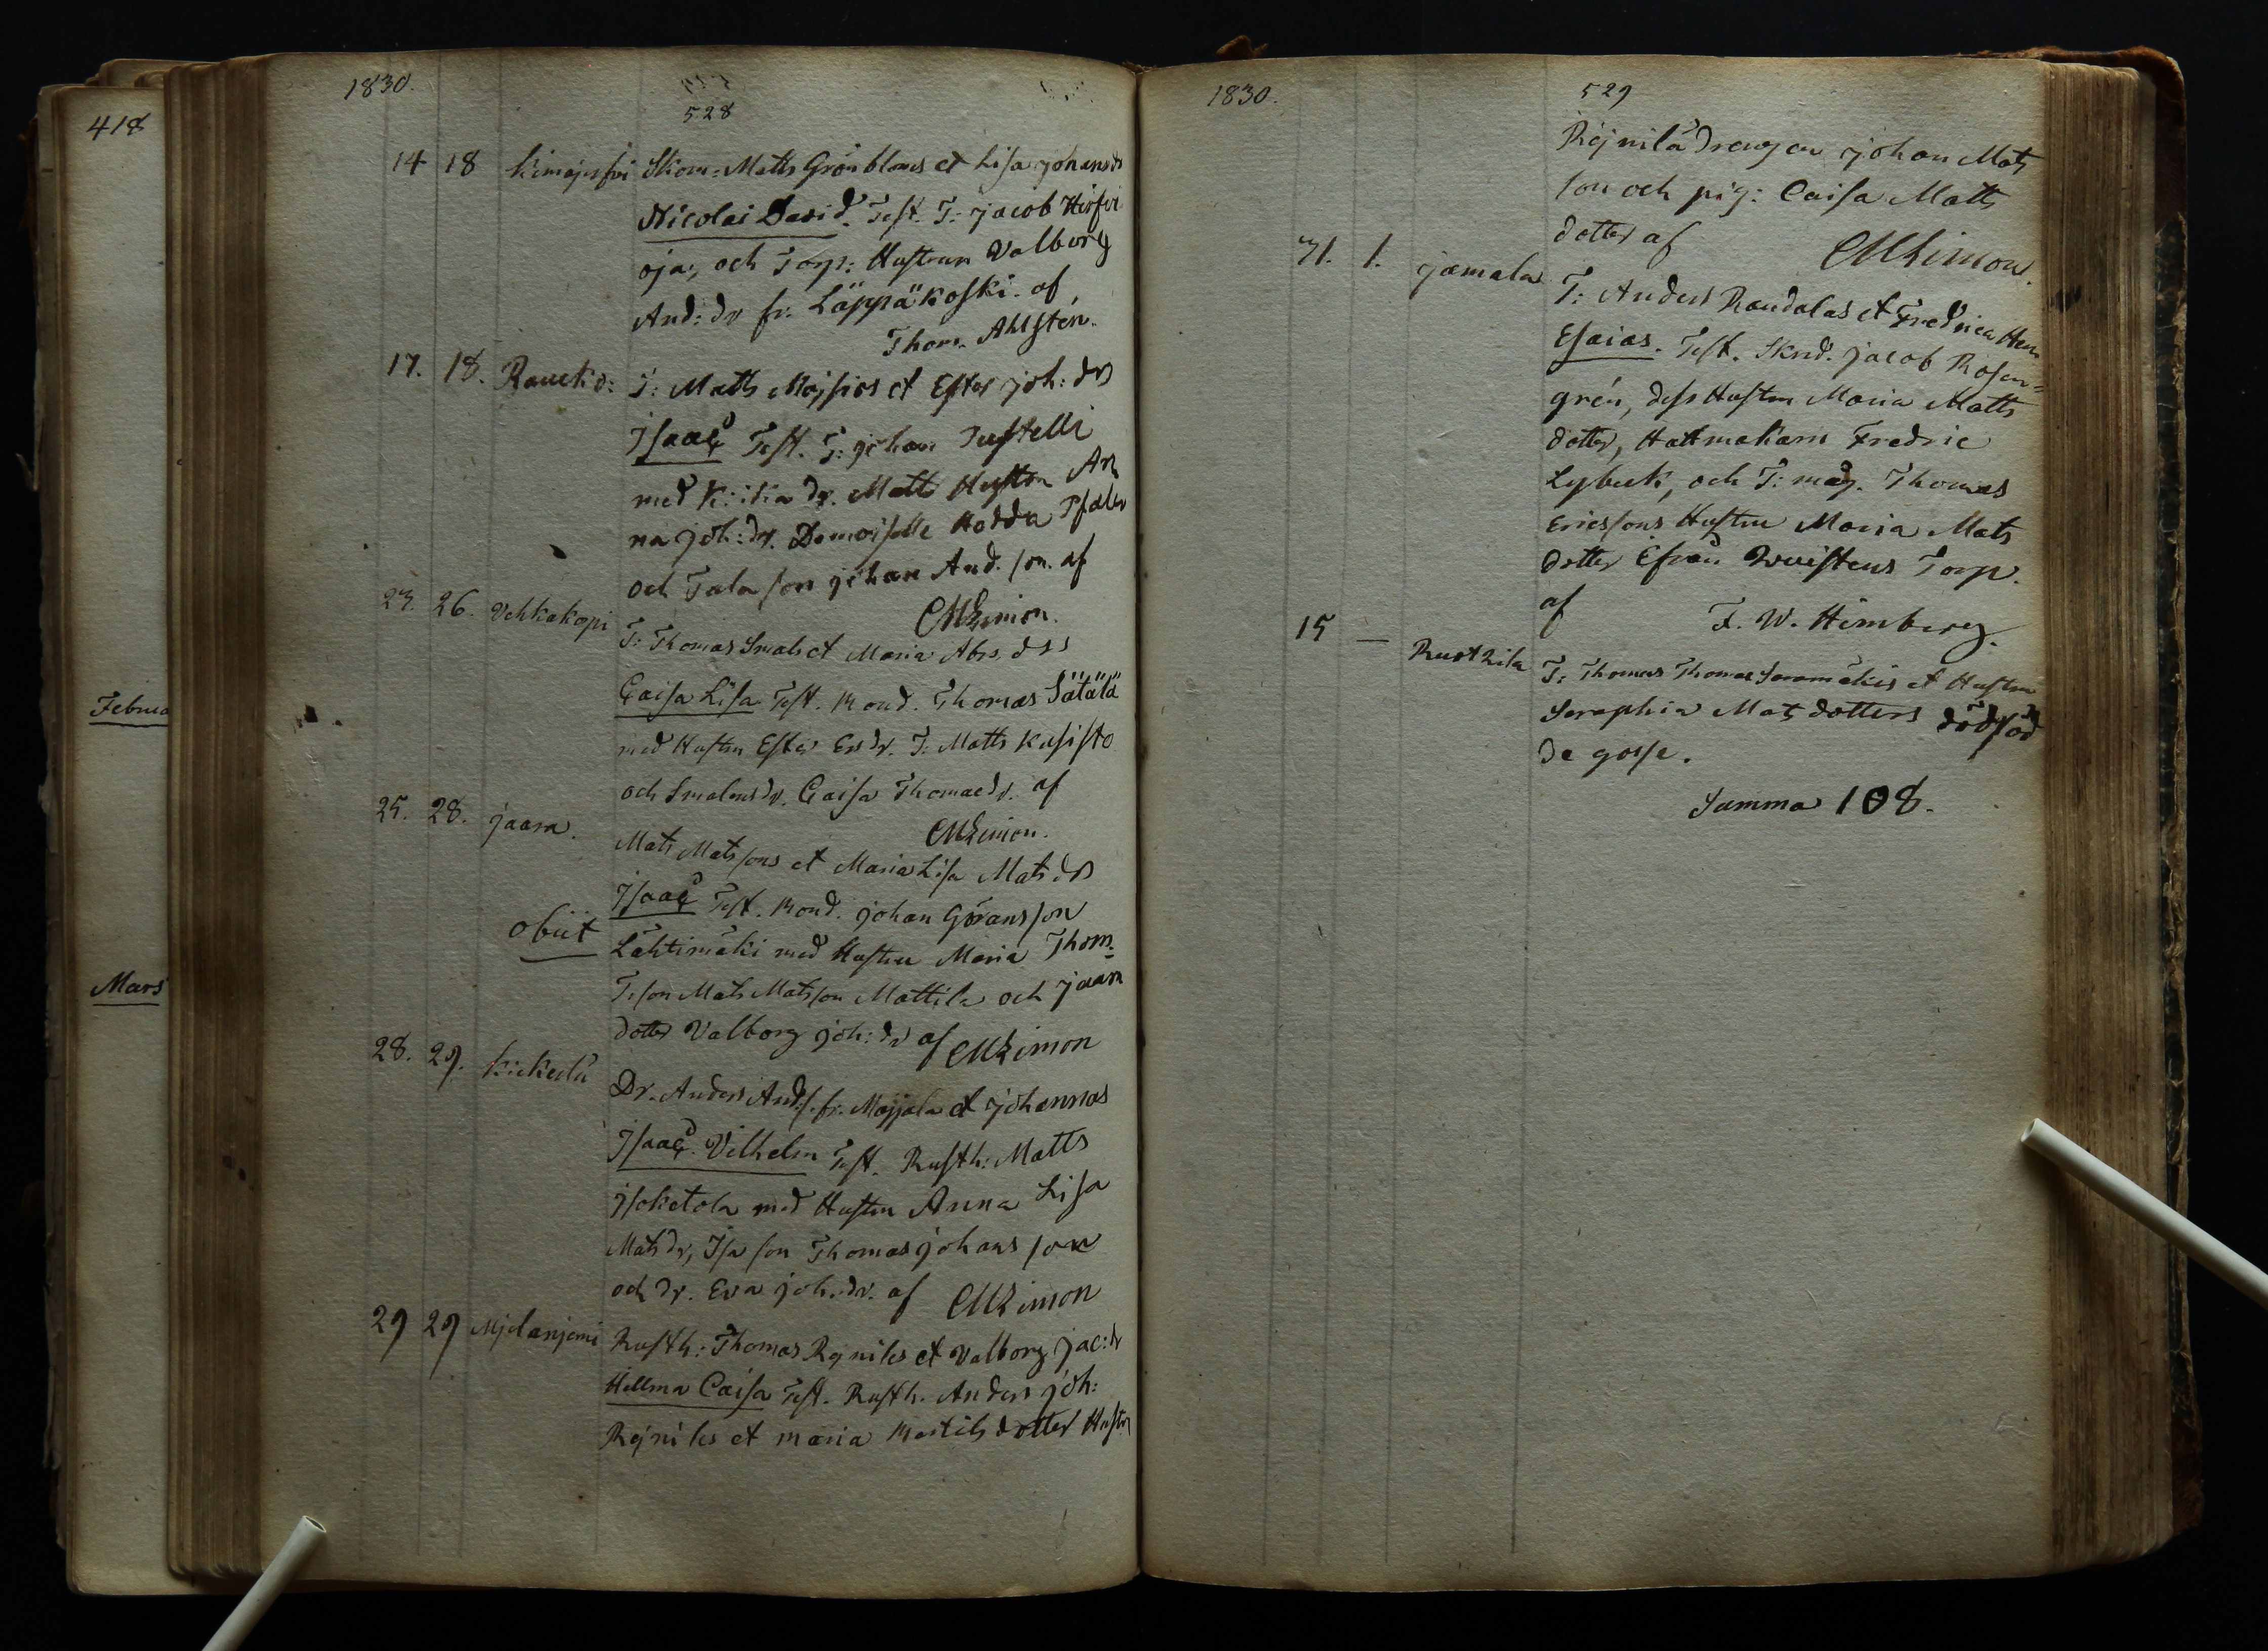 418
Februa
Mars
1830.
528
14 18 Skom: Matts Grönbloms et Lisa Johansdr
Nicolai David. Test. T: Jacob Hirfvi
oja, och Torp: Hustrun Valborg
And: dr fr. Läppäkoski. af
Thom. Ahlstén.
17. 18. T: Matts et Ester Joh: drs
Isaac Test. T: Johan
med Matts Hustru An
na Joh: dr. Demoiselle Hedda
och son Johan And. son. af
CMLimon.
23. 26. Vehkakopi T: Thomas Smals et Maria Abrs. drs
Caisa Lisa Test. Bond. Thomas Sätälä
med Hustru Ester Er. dr. T: Matts Kusisto
och Smalens dr. Caisa Thomasdr. af
CMLimon.
25. 28. Jaara. Mats Matssons et Maria Lisa Mats drs
Isaac Test. Bond. Johan Göransson
obiit Lähtimäki med Hustru Maria Thom.
T. son Mats Matsson Mattila och Jaara
dotter Valborg Joh: dr af CMLimon
28. 29. Dr. Anders And.s. fr. Majjala et Johannas
Isaac Vilhelm Test. Rusth: Matts
Isoketola med Hustru Anna Lisa
Mats dr, son Thomas Johansson
och dr. Eva Joh. dr. af CMLimon
29 29 Rusth: Thomas et Valborg Jac: dr
Hellma Caisa Test. Rusth. Anders Joh:
et Maria dotter Hustr
1830.
529
drengen Johan Mats
son och pig: Caisa Matts
dotter af CMLimon.
31. 1. Jamala T: Anders Randalas et Fredrica Hen
Esaias. Test. Skrd. Jacob Rosen=
grén, dess Hustru Maria Matts
dotter, Hattmakarn Fredric
Lybeck, och T: mag. Thomas
Ericssons Hustru Maria Mats
dotter ifrån Torp.
af F. W. Himberg.
15 — T: Thomas Thomas et Hustru
Seraphia Mats dotters dödföd
de gosse.
Summa 108.